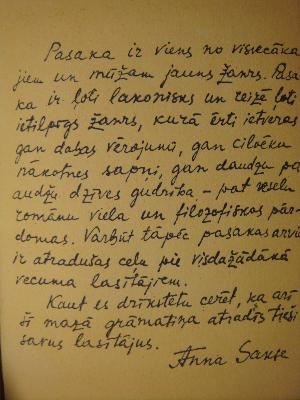 Pasaka ir viens no vissecāka
jiem un mūžam jauns žanrs. Pasa
ka ir ļoti lakonisks un reizē ļoti
ietilpīgs žanrs, kurā ērti ietveras
gan dabas vērojumi, gan cilvēku
nākotnes sapņi, gan daudzu pa
audžu dzīves gudrība – pat veselu
romānu viela un filozofiskas pār-
domas. Varbūt tāpēc pasakas arvien
ir atradušas ceļu pie visdažādākā
vecuma lasītājiem.
Kaut es drīkstētu cerēt, ka arī
šī mazā grāmatiņa atradīs tieši
savus lasītājus.
Anna Sakse